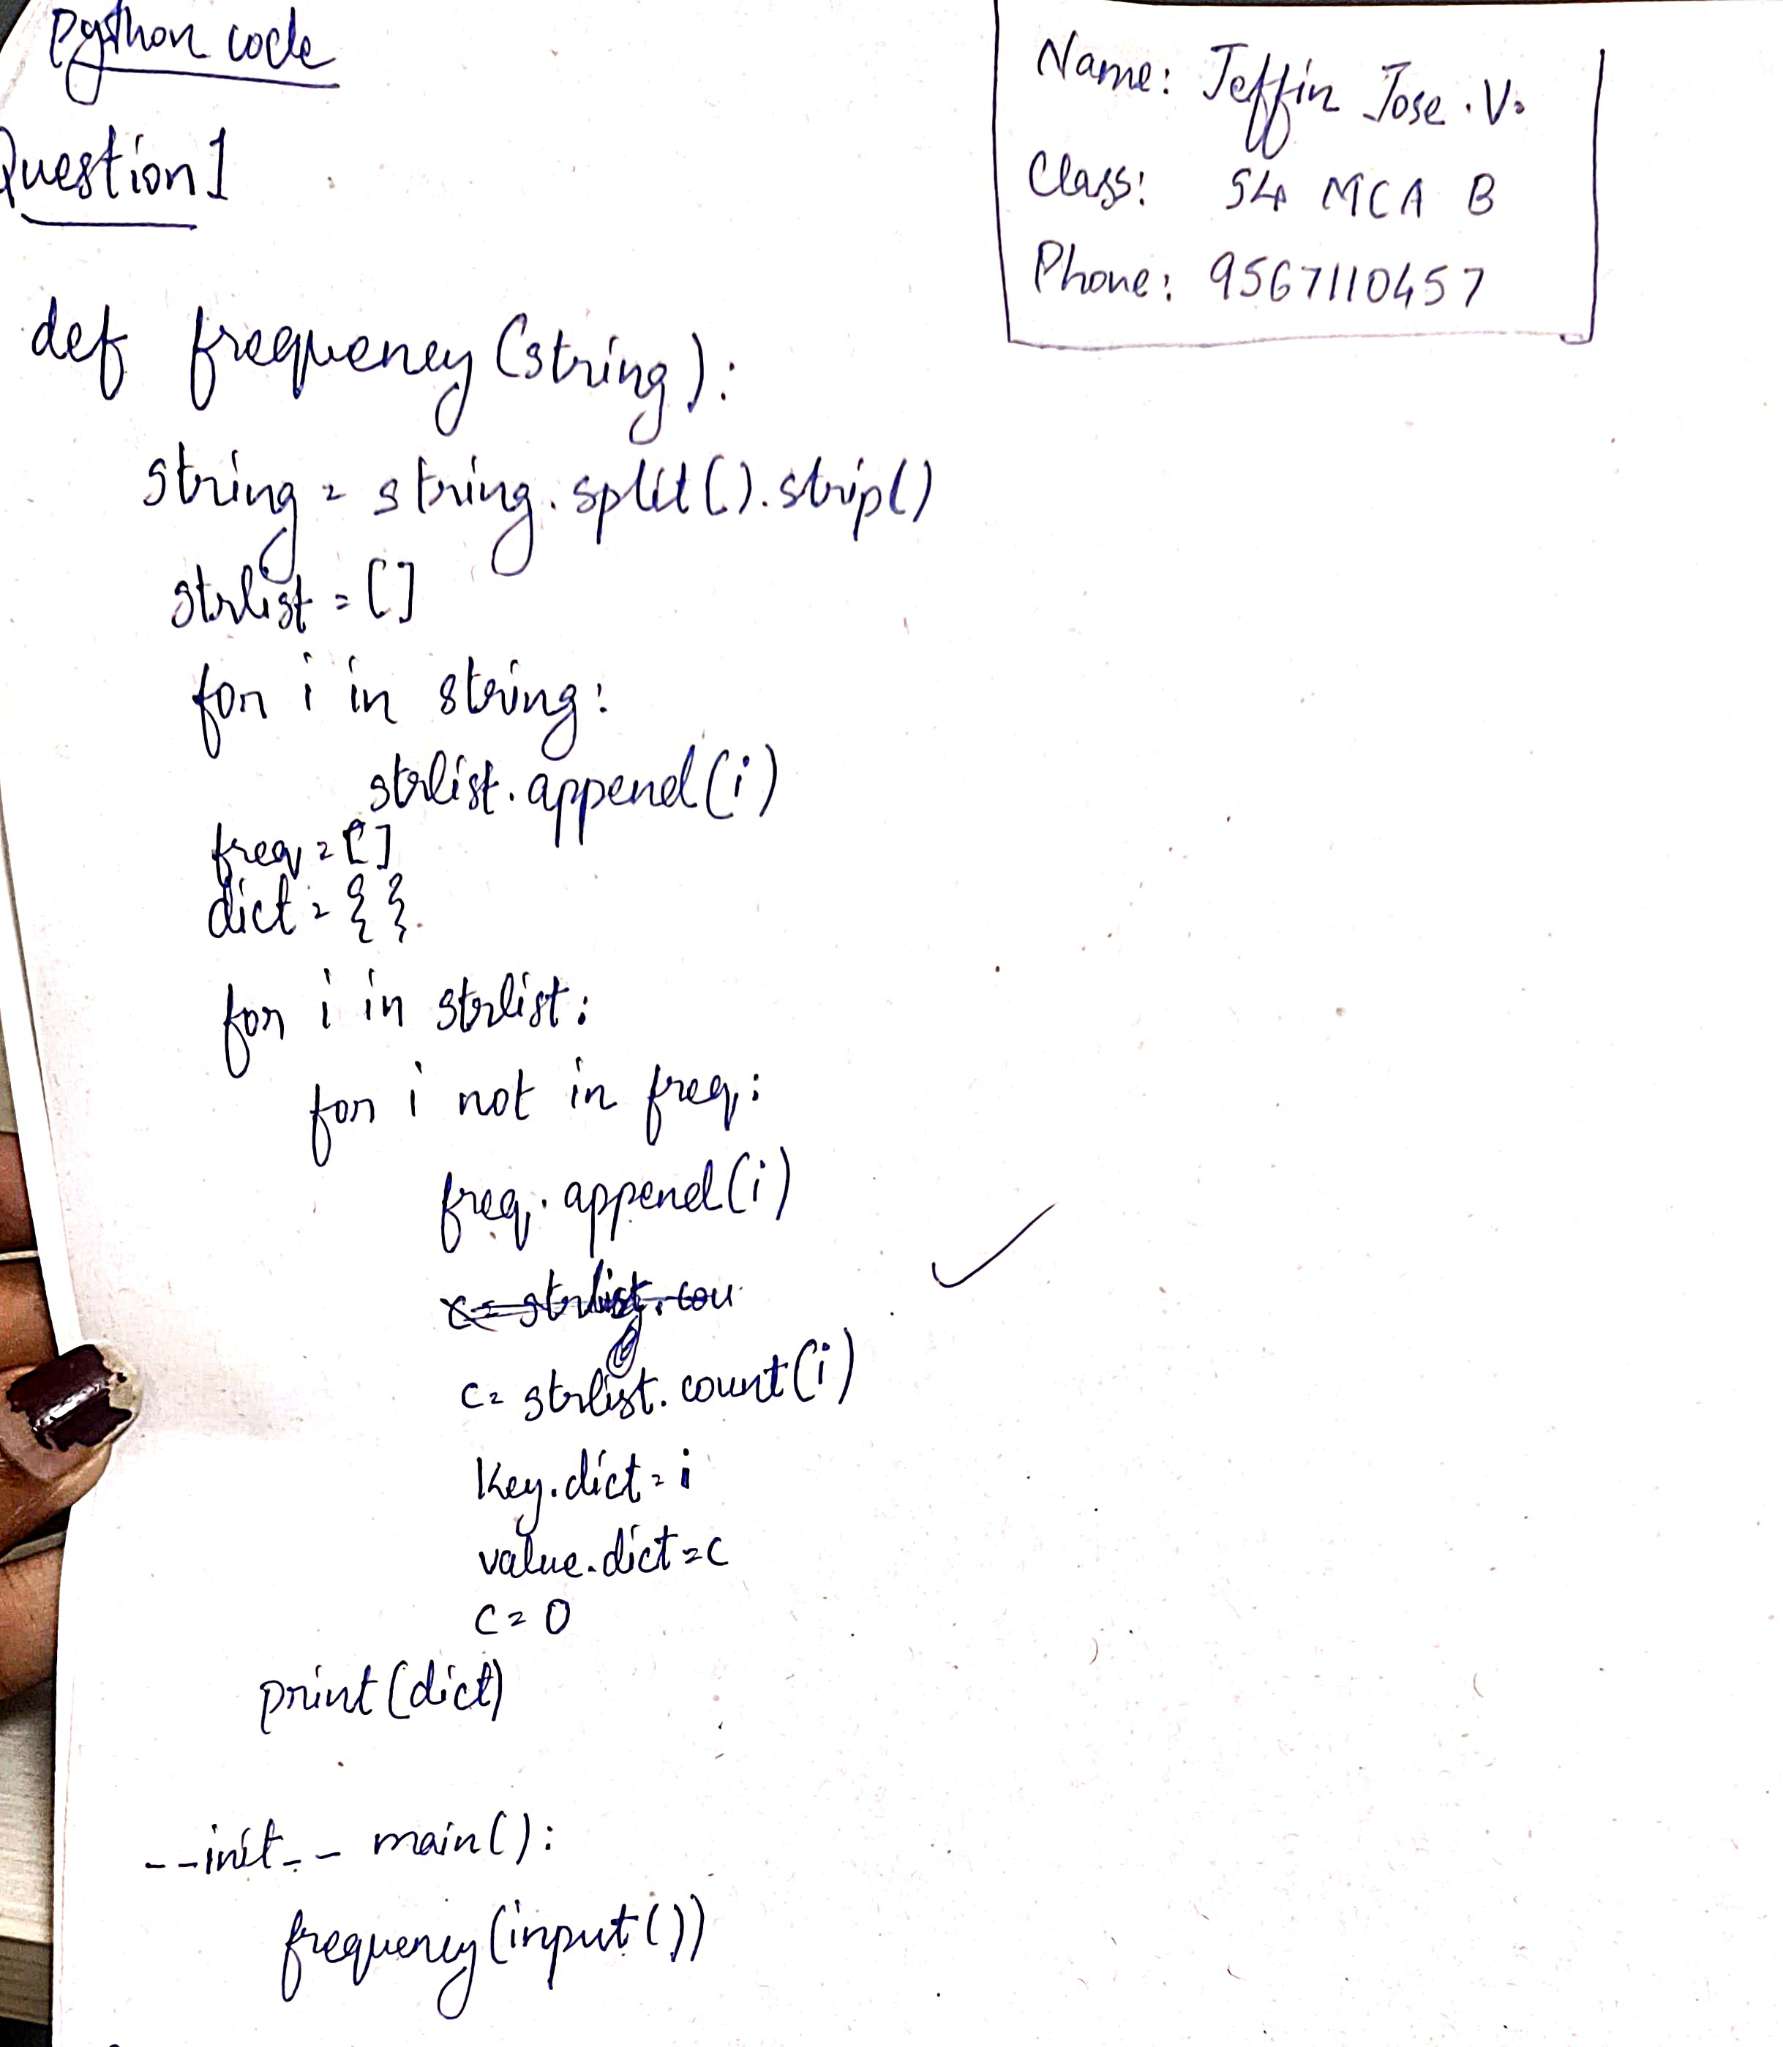 Python code
Question 1
Name: Jeffin Jose . V.
Class: S4 MCA B
Phone: 9567110457
def frequency (string):
string = string. split(). strip()
strlist = []
for i in string:
strlist. append (i)
freq = []
dict = { }
for i in strlist:
for i not in freq:
freq. append (i)
x = strlist. cou
c = strlist. count (i)
Key. dict = i
value. dict = c
c = 0
print (dict)
--init-- main():
frequency (input())